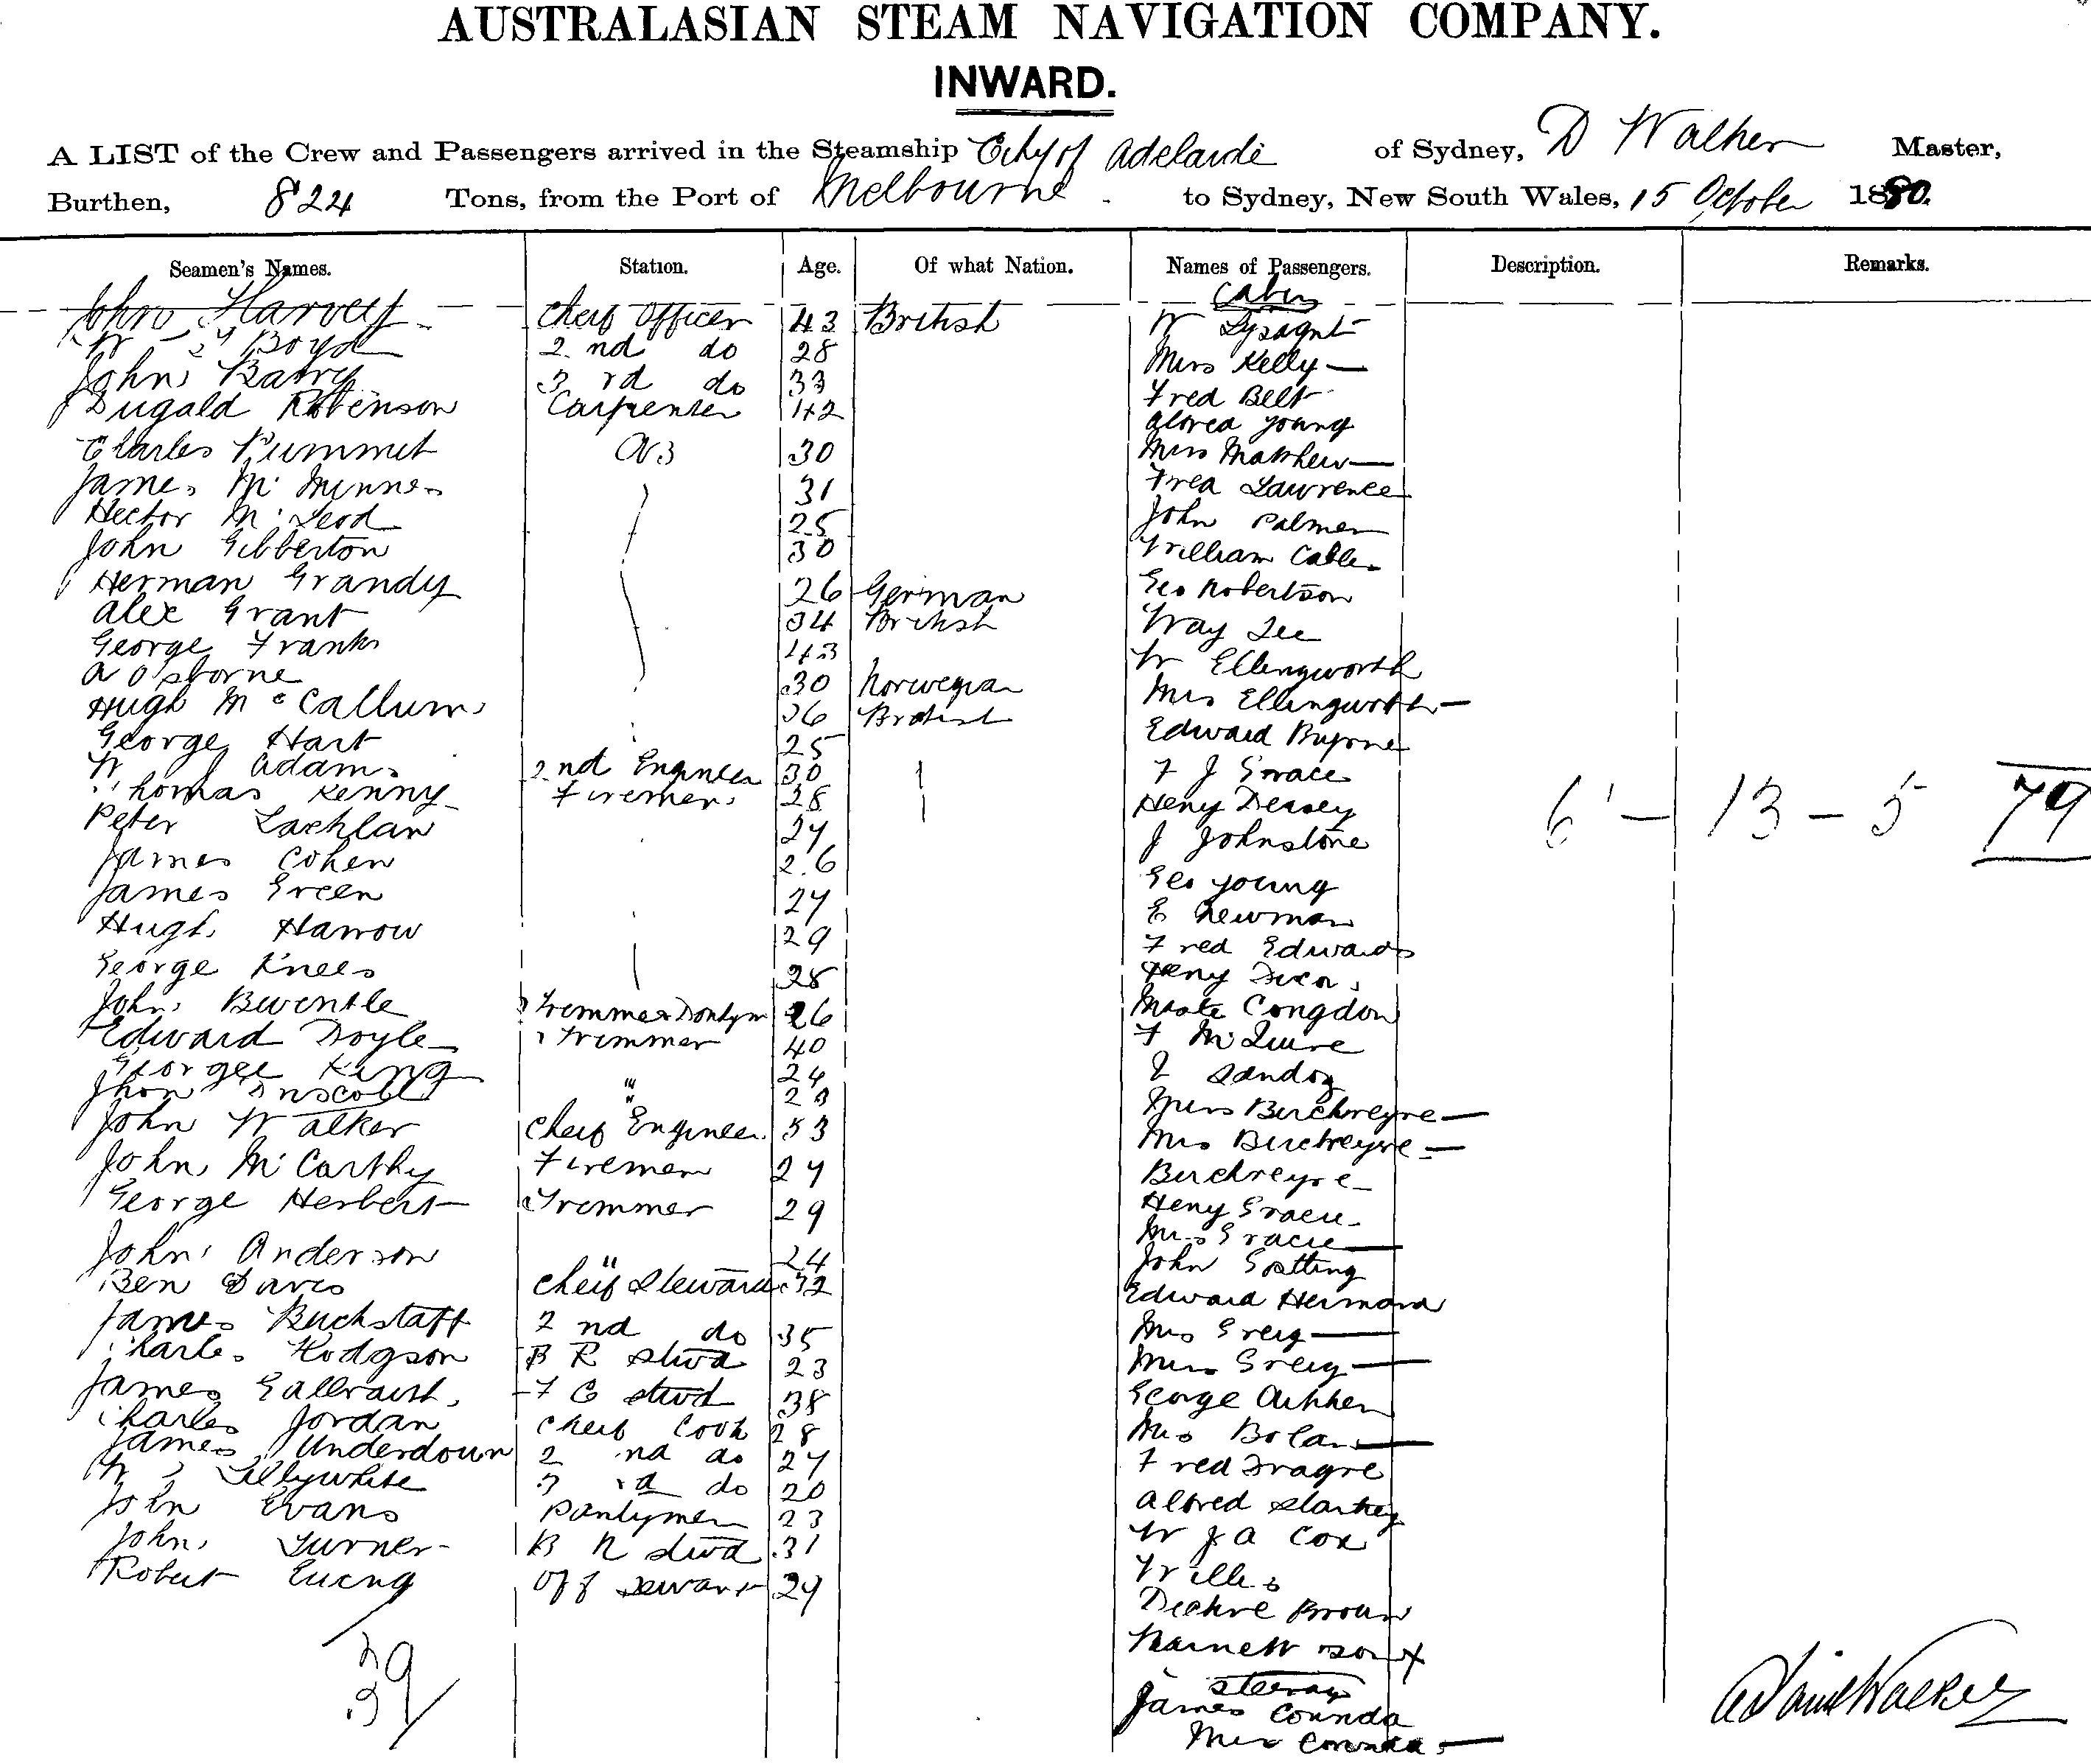 AUSTRALASIAN STEAM NAVIGATION COMPANY.
INWARD.
A LIST of the Crew and Passengers arrived in the Steamship City of Adelaide of Sydney, D Walker Master,
Burthen, 824 Tons, from the Port of Melbourne to Sydney, New South Wales, 15 October 1880.
Seamen's Names. Station. Age. Of what Nation. Names of Passengers. Description. Remarks.
Cabin
John Harvey Cheif Officer 43 British W Lysaght
W Boyd 2nd do 28 Miss Kelly
John Barry 3rd do 33 Fred Belt
Dugald Robinson Carpenter 42 Alfred Young
Charles Plummet AB 30 Miss Matthew
James Mc 31 Fred Lawrence
Hector McLeod 25 John Palmer
John Gibberton 30 William Cable
Herman Grandy 26 German Geo Robertson
Alex Grant 34 British Way Lee
George Franks 43 W Ellingworth
A Osborne 30 Norwegian Mrs Ellingworth
Hugh McCallum 36 British Edward Byrne
George Hart 25 F J Grace
W J Adams 2nd Engineer 30 Heny Dersey
Thomas Kenny Firemen 28 J Johnstone
Peter Lachlan 27 Geo Young
James Cohen 26 E Newman
James Green 27 Fred Edwards
Hugh Harrow 29 Heny
George Knees 28 Congdon
John Trimmer 26 F
Edward Doyle Trimmer 40 Sandoz
George King 24 Miss Birchreyre
Jhon Driscoll " 23 Mrs Birchreyre
John Walker Cheif Engineer 53 Birchreyre
John McCarthy Firemen 27 Heny Gracie
George Herbert Trimmer 29 Mrs Gracie
John Anderson " 24 John Gotting
Ben Davis Cheif Steward 32 Edward
James Buckstaff 2nd do 35 Mrs Greig
Charles Hodgson B R Stwd 23 Miss Greig
James Gallraith F C Stwd 38 George Aitken
Charles Jordan Cheif Cook 28 Mrs Bolan
James Underdown 2nd do 27 Fred
W Lillywhite 3rd do 20 Alfred Starkey
John Evans Pantrymen 23 W J A Cox
John Turner B R Stwd 31 Willis
Robert Eueng Off Sewart 29 Brown
Barnett
Steerage
James Counda
Mrs Counda
6 - 13 - 5 79
39
39
Daniel Walker